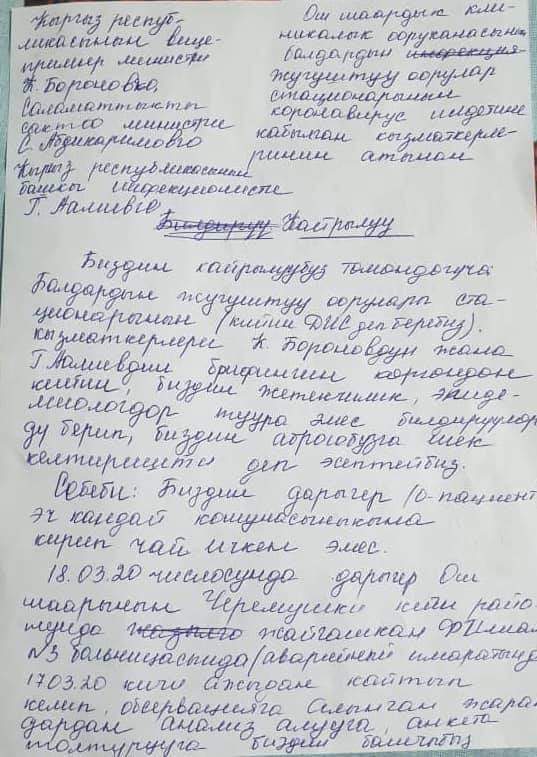 Кыргыз респуб-
ликасынын вице-
премьер министри
К. Бороновко,
Саламаттыкты
сактоо министри
С. Абдикаримовго
Кыргыз республикасынын
башкы инфекционисти
Г. Аалиевге
Ош шаардык кли-
никалык ооруканасынын
балдардын инфекция-
жугуштуу оорулар
стационарынын
коронавирус илдетине
кабылган кызматкерле-
ринин атынан
Билдирүү Кайрылуу
Биздин кайрылуубуз томондогучо
Балдардын жугуштуу оорулары ста-
ционарынын (кийин ДИС деп беребиз).
кызматкерлери К. Бороновдун жана
Г Аалиевдин брифингин коргондон
кийин, биздин жетекчилик, эпиде-
миологдор туура эмес билдируулор-
ду берип, биздин абройубузга шек
келтиришти деп эсептейбиз.
Себеби: Биздин дарыгер (0-пациент
эч кандай кошунасыныкына
кирип чай ичкен эмес.
18.03.20 числосунда дарыгер Ош
шаарынын Черемушки кичи райо
нунда жайгашкан Филиал
№3 больницасында (аварийный имаратынд
17.03.20 кичи ажыдан кайтып
келип, обсервацияга алынган жаран
дардан анализ алууга, анкета
толтурууга биздин башчыбыз